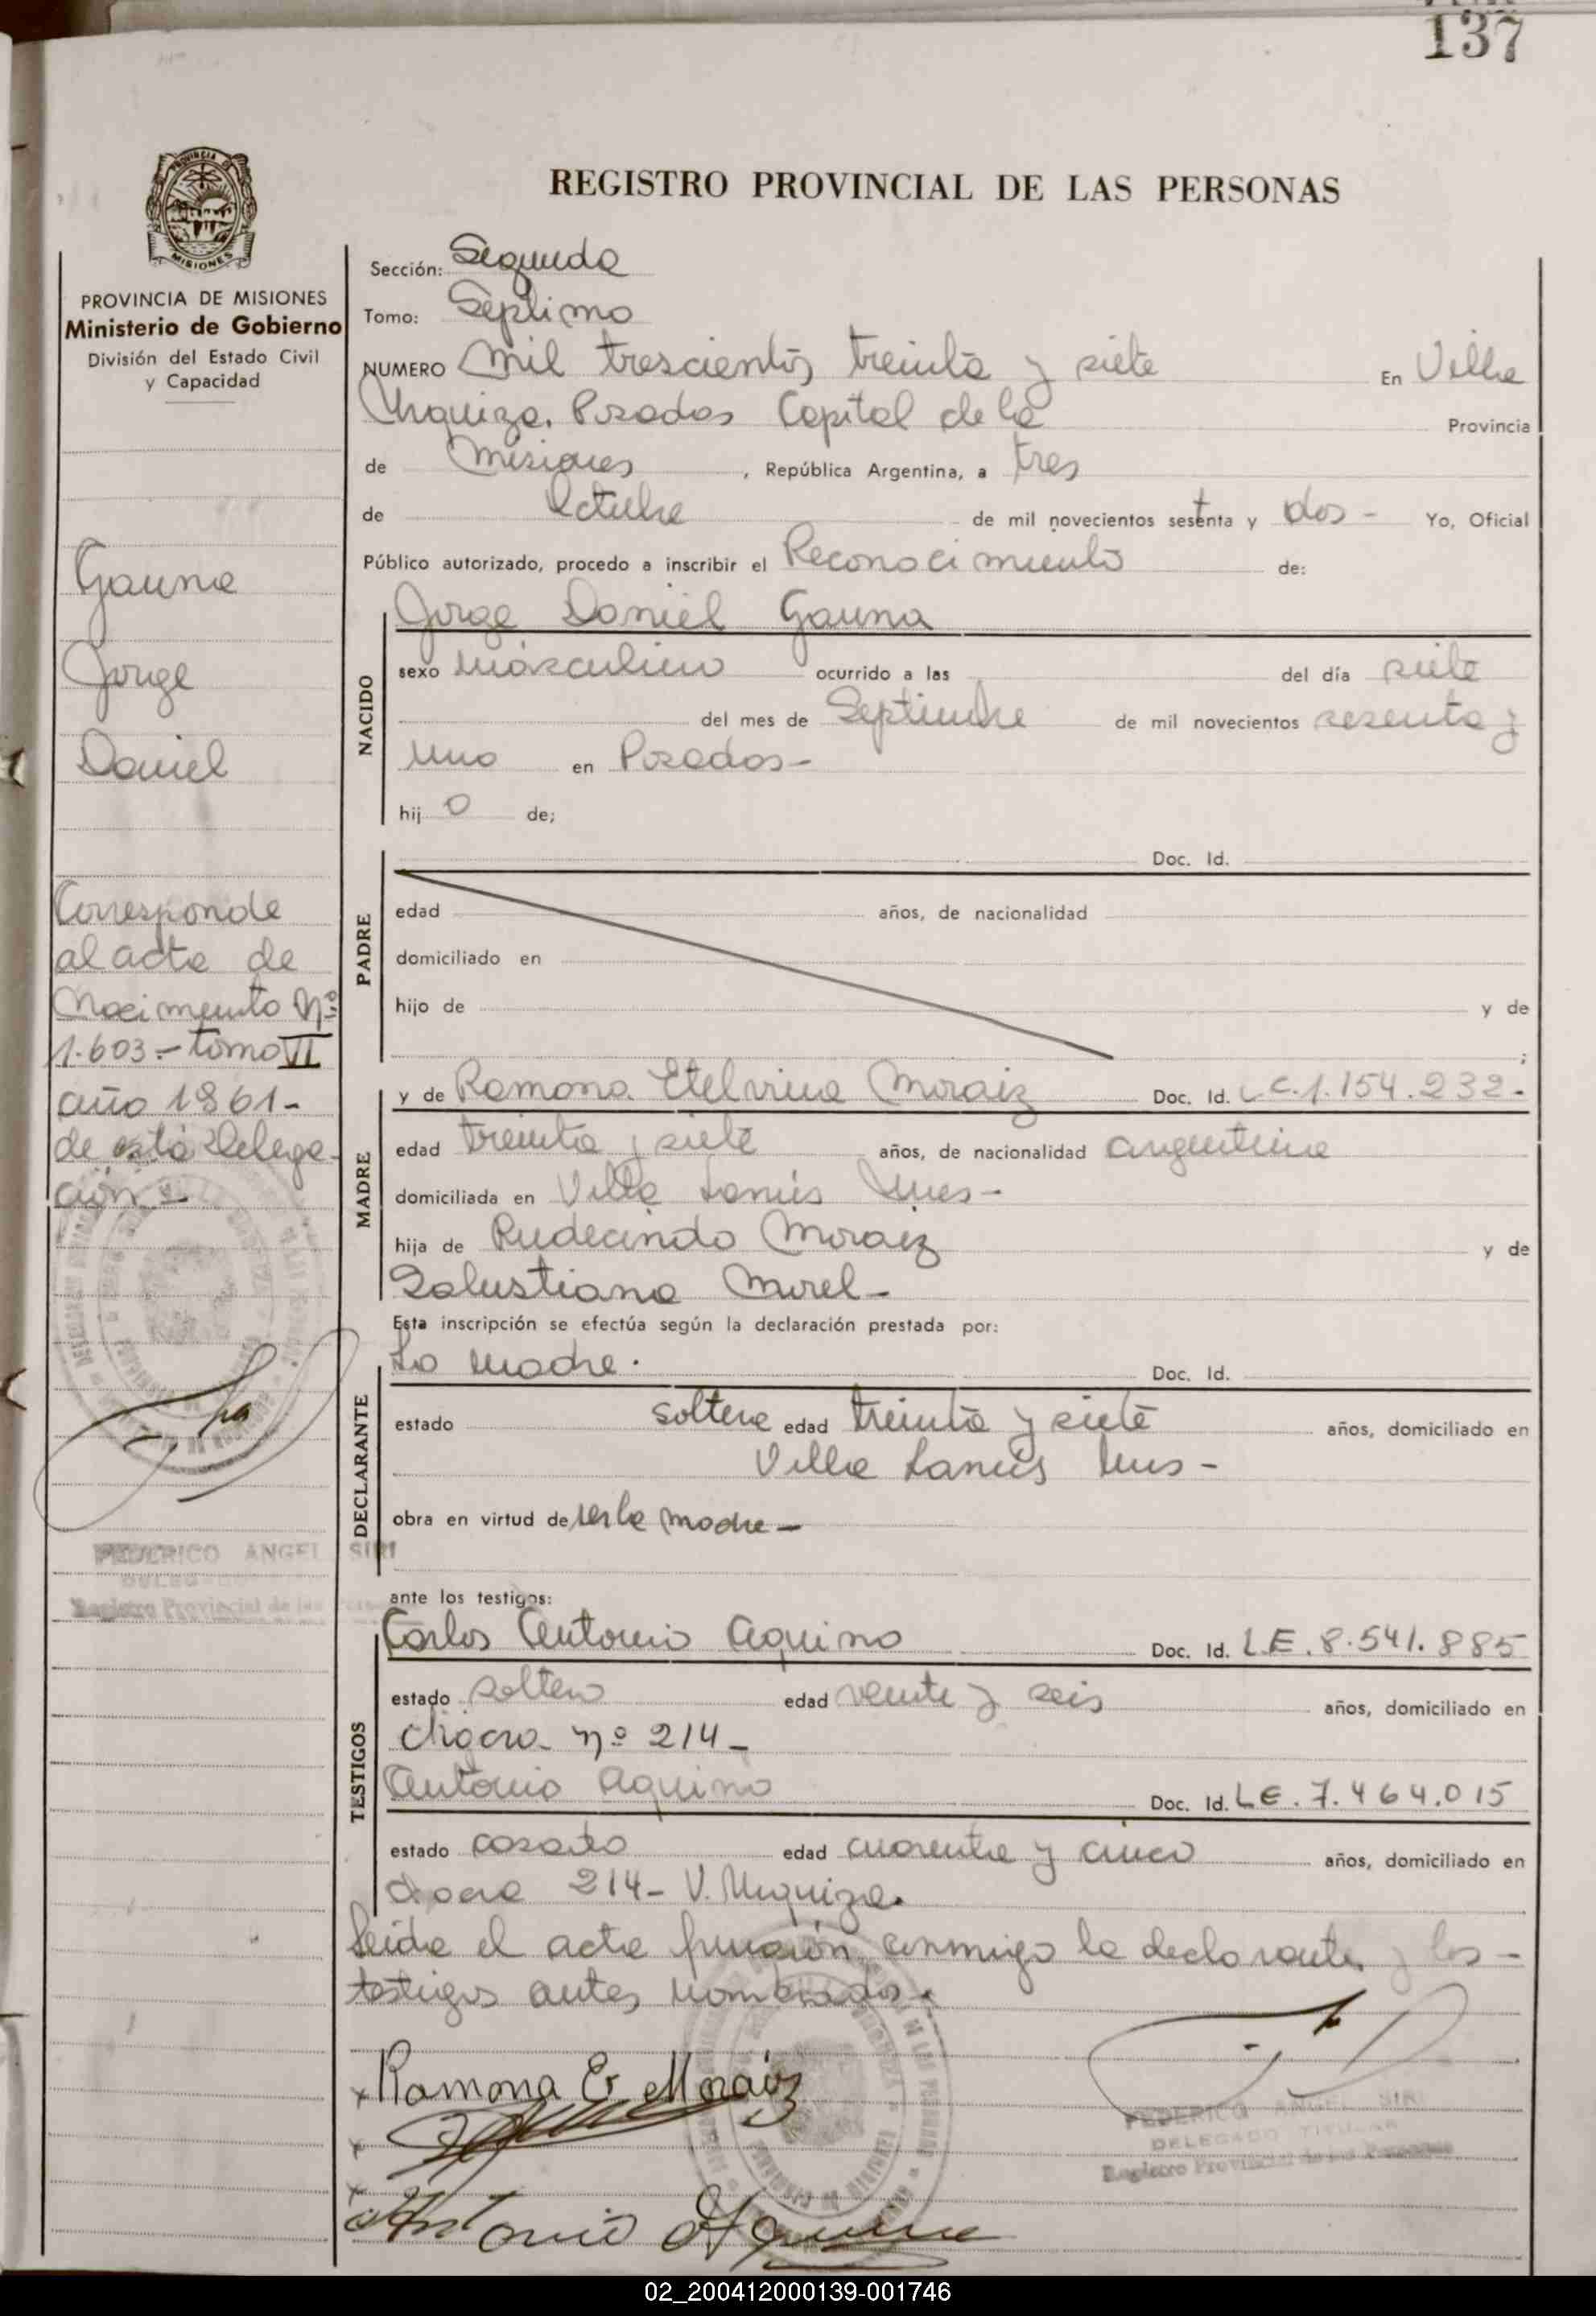 137
REGISTRO PROVINCIAL DE LAS PERSONAS
PROVINCIA DE MISIONES
Ministerio de Gobierno
División del Estado Civil
y Capacidad
Gauna
Jorge
Daniel
Corresponde
al acta de
Nacimiento Nº
1.603 - tomo VI
año 1961 -
de esta Delega-
ción -
FEDERICO ANGEL SIRI
Registro Provincial de las
Sección: Segunda
Tomo: Séptimo
NUMERO Mil trescientos treinta y siete En Villa
Urquiza. Posadas Capital de la Provincia
de Misiones, República Argentina, a tres
de Octubre de mil novecientos setenta y dos - Yo, Oficial
Público autorizado, procedo a inscribir el Reconocimiento de:
NACIDO
Jorge Daniel Gauna
sexo masculino ocurrido a las del día siete
del mes de Septiembre de mil novecientos sesenta y
uno en Posadas -
hij o de;
PADRE
Doc. Id.
edad años, de nacionalidad
domiciliado en
hijo de y de
;
MADRE
y de Ramona Etelvina Moraiz Doc. Id. L.C. 1.154.232 -
edad treinta y siete años, de nacionalidad argentina
domiciliada en Villa Lanús
hija de Rudecindo Moraiz y de
Salustiana Morel -
Esta inscripción se efectúa según la declaración prestada por:
DECLARANTE
La madre. Doc. Id.
estado soltera edad treinta y siete años, domiciliado en
Villa Lanús
obra en virtud de ser la madre -
ante los testigos:
TESTIGOS
Carlos Antonio Aquino Doc. Id. L.E. 8.541.885
estado soltero edad veinte y seis años, domiciliado en
chacra nº 214 -
Antonio Aquino Doc. Id. L.E. 7.464.015
estado casado edad cuarenta y cinco años, domiciliado en
chacra 214 - V. Urquiza.
Leida el acta firmaron conmigo la declarante y los -
testigos antes nombrados.
x Ramona E. Moraiz
x
x Antonio Aquino
FEDERICO ANGEL SIRI
DELEGADO TITULAR
Registro Provincial de las Personas
02_200412000139-001746